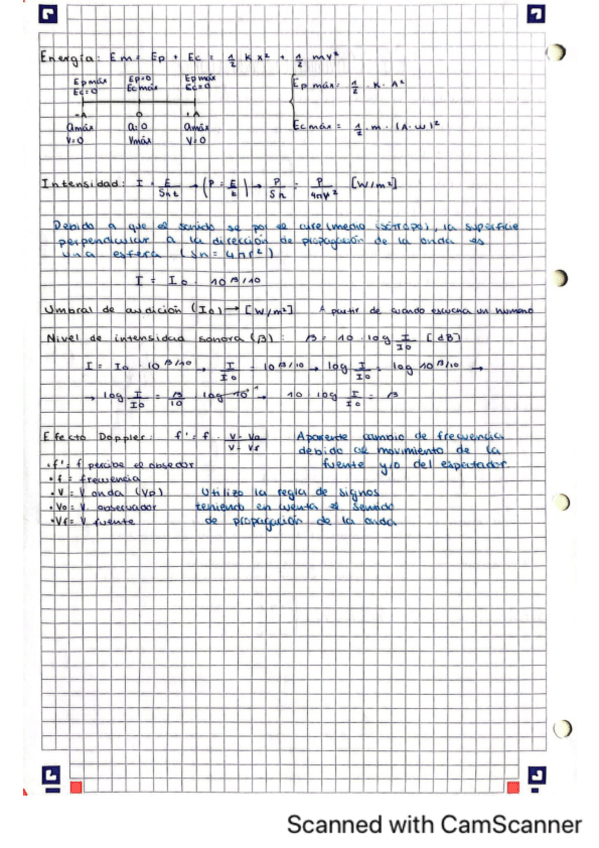 Energía: Em = Ep + Ec = 1/2 Kx² + 1/2 mv²
Ep máx Ep=0 Ep máx
Ec=0 Ec máx Ec=0
Ep máx = 1/2 · K · A²
-A 0 +A
amáx a=0 amáx
V=0 Vmáx V=0
Ec máx = 1/2 · m · (A·w)²
Intensidad: I = E/Sn·t → (P = E/t) → P/Sn = P/4πr² [W/m²]
Debido a que el sonido se por el aire (medio isótropo), la superficie
perpendicular a la dirección de propagación de la onda es
una esfera (Sn = 4πr²)
I = I0 · 10^β/10
Umbral de audición (I0) → [W/m²] A partir de cuando escucha un humano
Nivel de intensidad sonora (β): β = 10 · log I/I0 [dB]
I = I0 · 10^β/10 → I/I0 = 10^β/10 → log I/I0 = log 10^β/10 →
→ log I/I0 = β/10 · log 10¹ → 10 · log I/I0 = β
Efecto Doppler: f' = f · V - Vo / V - Vf
Aparente cambio de frecuencia
debido al movimiento de la
fuente y/o del espectador
· f' = f percibe el obsedor
· f = frecuencia
· V = V onda (Vp)
· Vo = V observador
· Vf = V fuente
Utilizo la regla de signos
teniendo en cuenta el sentido
de propagación de la onda
Scanned with CamScanner